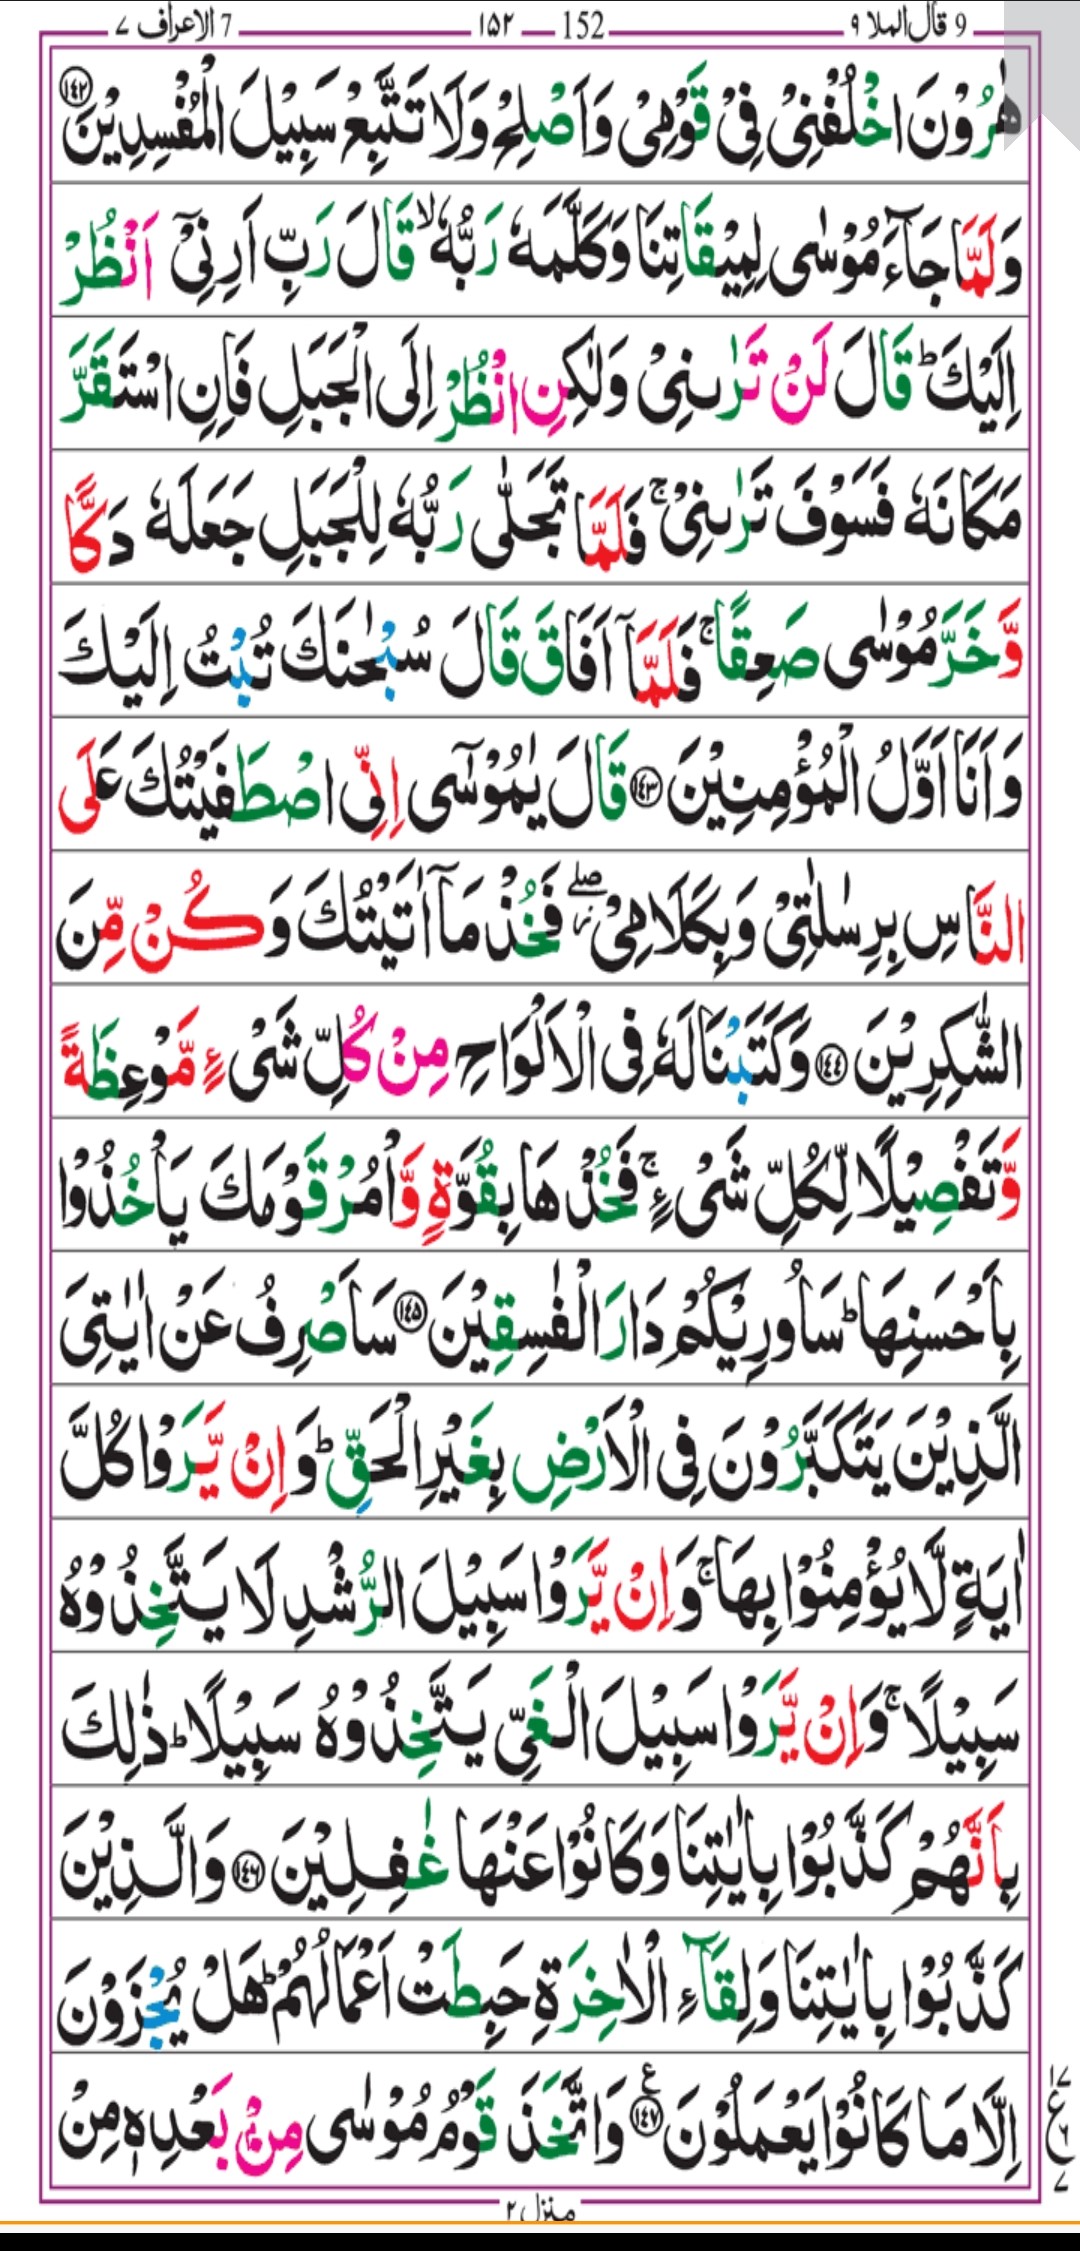 9 قال الملا ٩ 152 ١٥٢ 7 الاعراف ٧
هٰرُوْنَ اخْلُفْنِیْ فِیْ قَوْمِیْ وَاَصْلِحْ وَلَا تَتَّبِعْ سَبِیْلَ الْمُفْسِدِیْنَ ﴿١٤٢﴾
وَلَمَّا جَآءَ مُوْسٰی لِمِیْقَاتِنَا وَكَلَّمَهٗ رَبُّهٗ ۙ قَالَ رَبِّ اَرِنِیْۤ اَنْظُرْ
اِلَیْكَ ؕ قَالَ لَنْ تَرٰىنِیْ وَلٰكِنِ انْظُرْ اِلَی الْجَبَلِ فَاِنِ اسْتَقَرَّ
مَكَانَهٗ فَسَوْفَ تَرٰىنِیْ ۚ فَلَمَّا تَجَلّٰی رَبُّهٗ لِلْجَبَلِ جَعَلَهٗ دَكًّا
وَّخَرَّ مُوْسٰی صَعِقًا ۚ فَلَمَّاۤ اَفَاقَ قَالَ سُبْحٰنَكَ تُبْتُ اِلَیْكَ
وَاَنَا اَوَّلُ الْمُؤْمِنِیْنَ ﴿١٤٣﴾ قَالَ یٰمُوْسٰۤی اِنِّی اصْطَفَیْتُكَ عَلَی
النَّاسِ بِرِسٰلٰتِیْ وَبِكَلَامِیْ ۖ فَخُذْ مَاۤ اٰتَیْتُكَ وَكُنْ مِّنَ
الشّٰكِرِیْنَ ﴿١٤٤﴾ وَكَتَبْنَا لَهٗ فِی الْاَلْوَاحِ مِنْ كُلِّ شَیْءٍ مَّوْعِظَةً
وَّتَفْصِیْلًا لِّكُلِّ شَیْءٍ ۚ فَخُذْهَا بِقُوَّةٍ وَّاْمُرْ قَوْمَكَ یَاْخُذُوْا
بِاَحْسَنِهَا ؕ سَاُورِیْكُمْ دَارَ الْفٰسِقِیْنَ ﴿١٤٥﴾ سَاَصْرِفُ عَنْ اٰیٰتِیَ
الَّذِیْنَ یَتَكَبَّرُوْنَ فِی الْاَرْضِ بِغَیْرِ الْحَقِّ ؕ وَاِنْ یَّرَوْا كُلَّ
اٰیَةٍ لَّا یُؤْمِنُوْا بِهَا ۚ وَاِنْ یَّرَوْا سَبِیْلَ الرُّشْدِ لَا یَتَّخِذُوْهُ
سَبِیْلًا ۚ وَاِنْ یَّرَوْا سَبِیْلَ الْغَیِّ یَتَّخِذُوْهُ سَبِیْلًا ؕ ذٰلِكَ
بِاَنَّهُمْ كَذَّبُوْا بِاٰیٰتِنَا وَكَانُوْا عَنْهَا غٰفِلِیْنَ ﴿١٤٦﴾ وَالَّذِیْنَ
كَذَّبُوْا بِاٰیٰتِنَا وَلِقَآءِ الْاٰخِرَةِ حَبِطَتْ اَعْمَالُهُمْ ؕ هَلْ یُجْزَوْنَ
اِلَّا مَا كَانُوْا یَعْمَلُوْنَ ﴿١٤٧﴾ ع وَاتَّخَذَ قَوْمُ مُوْسٰی مِنْۢ بَعْدِهٖ مِنْ
١٧
ع
٦
٧
منزل ٢